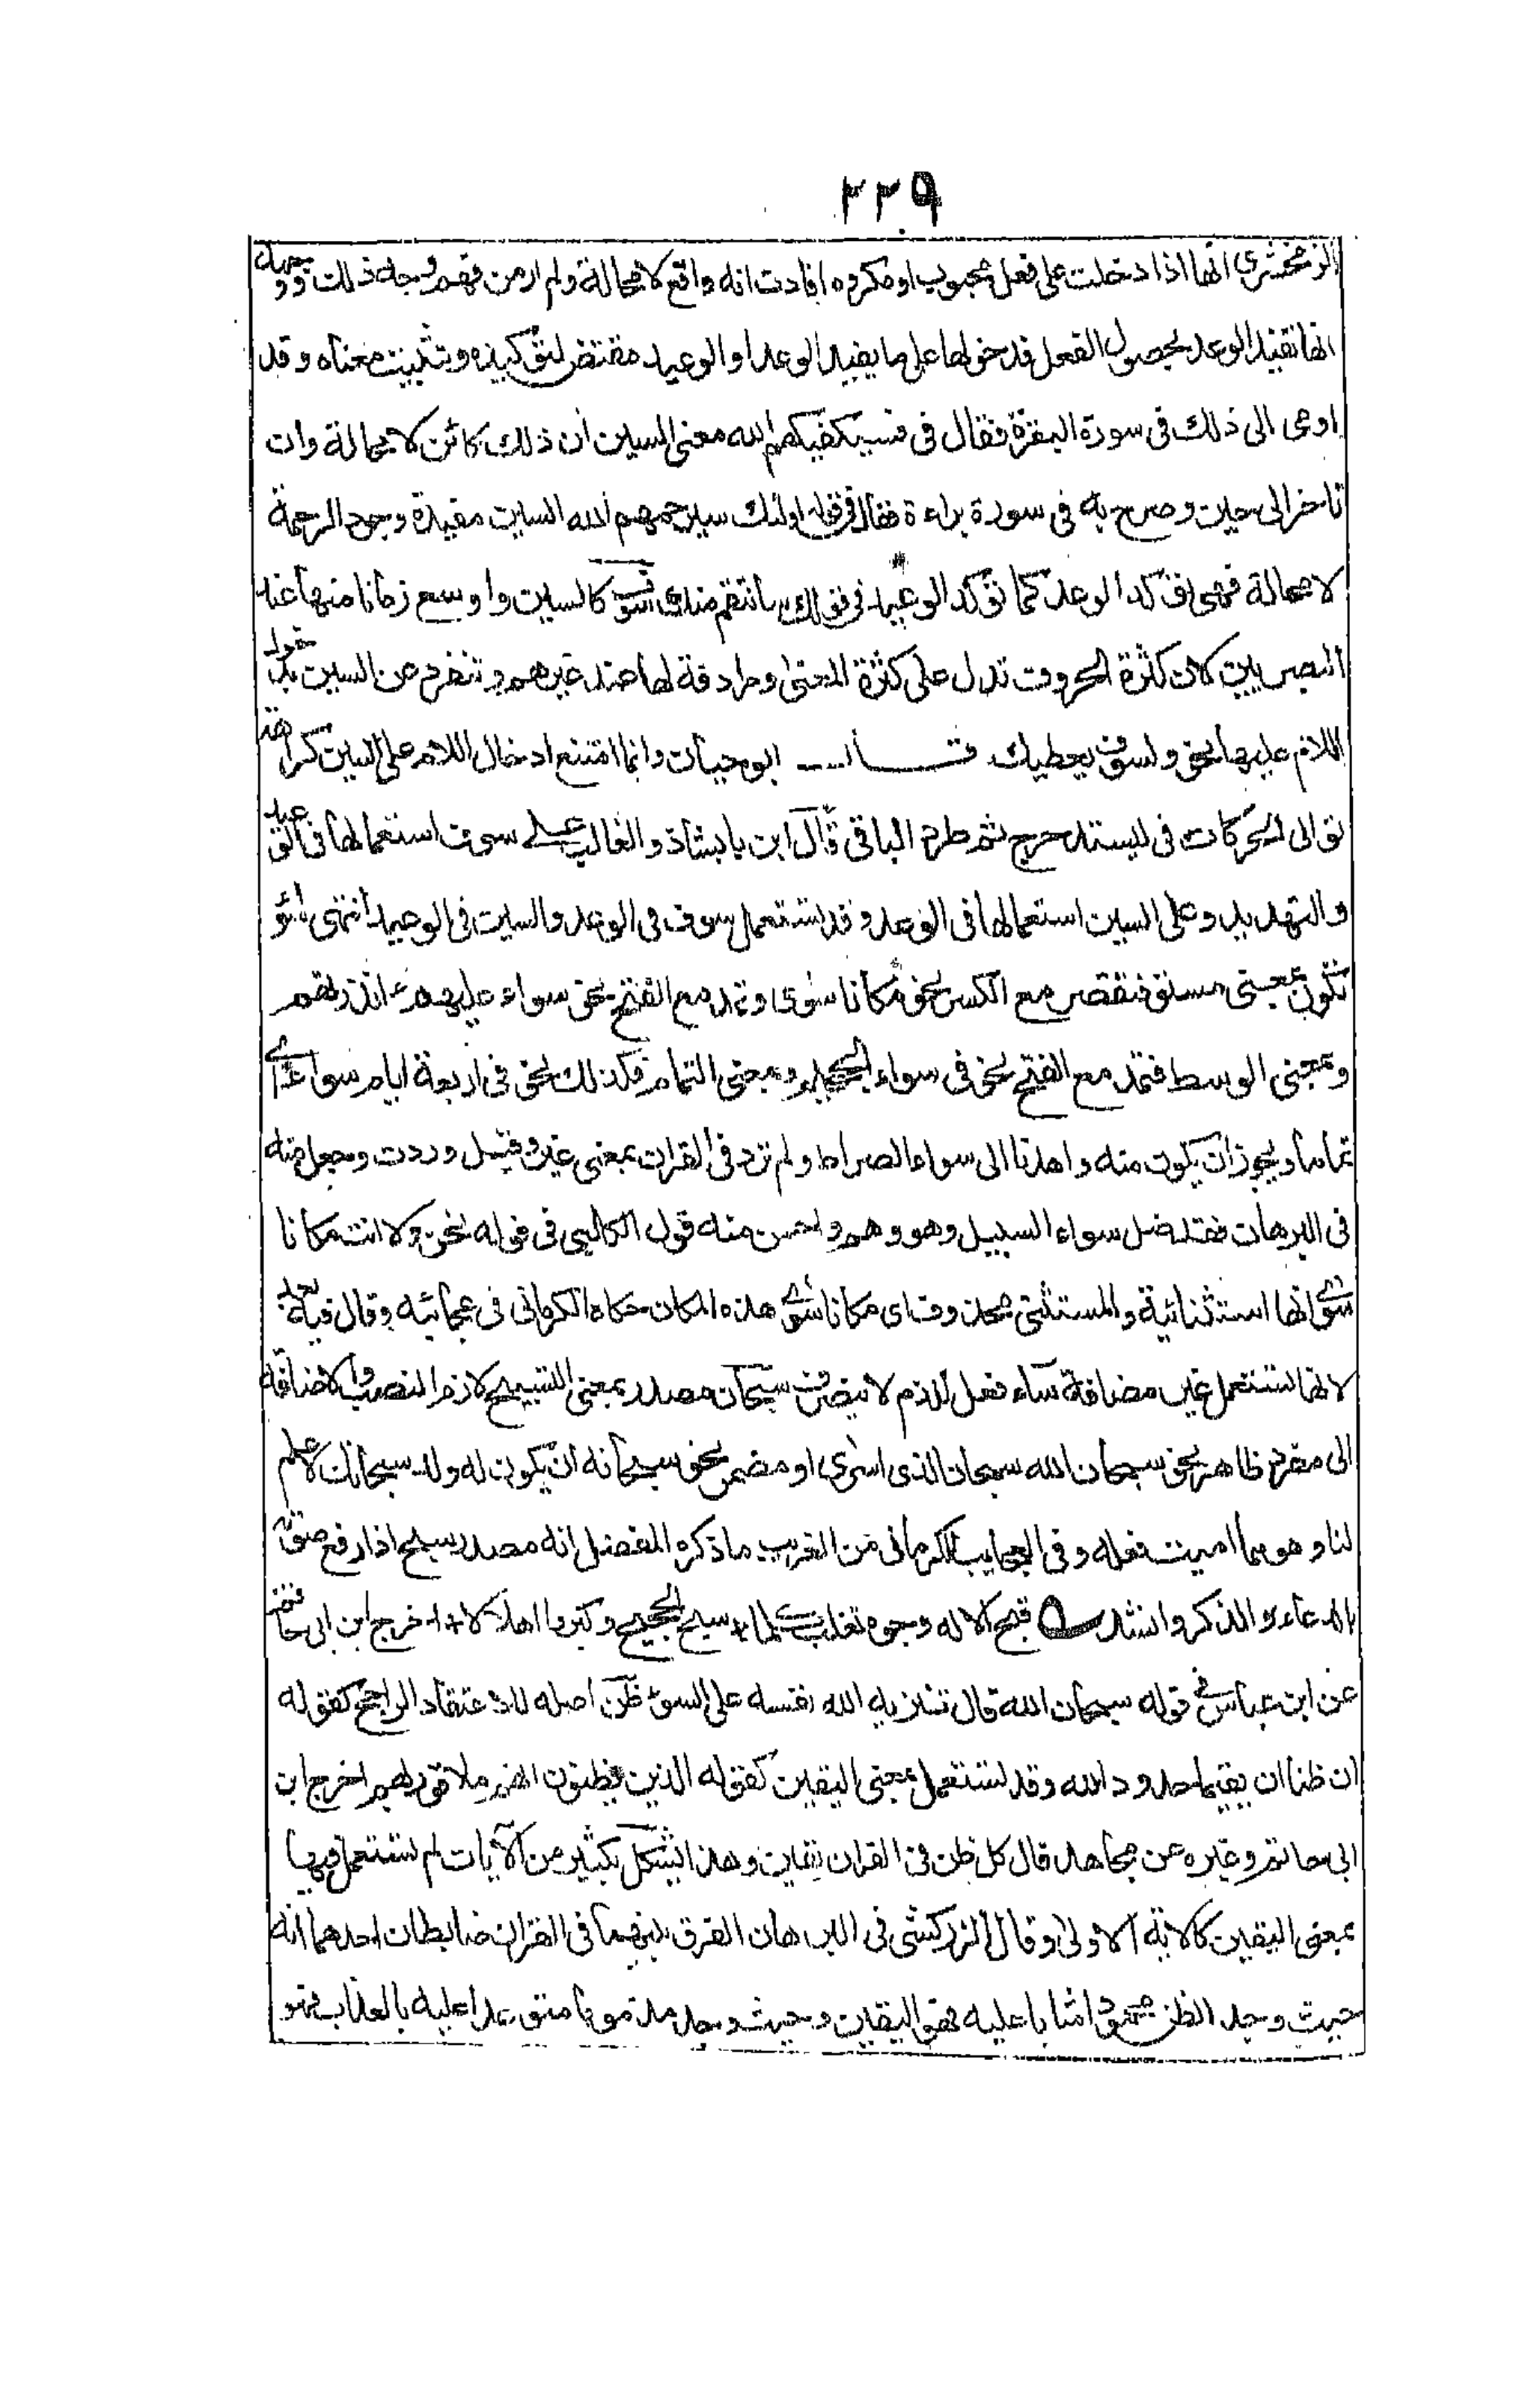 ٢٢٩
الزمخشري انها اذا دخلت على فعل محبوب او مكروه افادت انه واقع لا محالة ولم ار من فهم وجه ذلك ووجهه
انها تفيد الوعد بحصول الفعل فدخولها على ما يفيد الوعد او الوعيد مقتض لتوكيده وتثبيت معناه وقد
اومى الى ذلك فى سورة البقرة فقال فى فسيكفيكهم الله معنى السين ان ذلك كائن لا محالة وان
تاخر الى حين وصرح به فى سورة براءة فقال فى قوله اولئك سيرحمهم الله السين مفيدة وجود الرحمة
لا محالة فهى توكد الوعد كما توكد الوعيد فى قولك سانتقم منك سوف كالسين واوسع زمانا منها عند
البصريين لان كثرة الحروف تدل على كثرة المعنى ومرادفة لها عند غيرهم وتنفرد عن السين بدخول
اللام عليها نحو ولسوف يعطيك قال ابو حيان وانما امتنع ادخال اللام على السين كراهة
توالى الحركات فى ليستدحرج ثم طرد الباقى قال ابن بابشاذ والغالب على سوف استعمالها فى الوعيد
والتهديد وعلى السين استعمالها فى الوعد وقد تستعمل سوف فى الوعد والسين فى الوعيد انتهى سوا
تكون بمعنى مستو فتقصر مع الكسر نحو مكانا سوى وتمد مع الفتح نحو سواء عليهم ءانذرتهم
وبمعنى الوسط فتمد مع الفتح نحو فى سواء الجحيم وبمعنى التمام فكذلك نحو فى اربعة ايام سواء اى
تماما ويجوز ان يكون منه واهدنا الى سواء الصراط ولم ترد فى القران بمعنى غير وقيل وردت وجعل منه
فى البرهان فقد ضل سواء السبيل وهو وهم واحسن منه قول الكلبى فى قوله نحن ولا انت مكانا
سوى انها استثنائية والمستثنى محذوف اى مكانا سوى هذا المكان حكاه الكرمانى فى عجائبه وقال فيه بعد
لانها تستعمل غير مضافة ساء فعل للذم لا يتصرف سبحان مصدر بمعنى التسبيح لازم النصب والاضافة
الى مفرد ظاهر نحو سبحان الله سبحان الذى اسرى او مضمر نحو سبحانه ان يكون له ولد سبحانك لا علم
لنا وهو مما اميت فعله وفى العجايب للكرمانى من الغريب ما ذكره المفضل انه مصدر سبح اذا رفع صوته
بالدعاء والذكر وانشد قبح الاله وجوه تغلب كلما * سبح الحجيج وكبروا اهلالا * اخرج ابن ابى حاتم
عن ابن عباس فى قوله سبحان الله قال تنزيه الله نفسه على السوء ظن اصله للاعتقاد الراجح كقوله
ان ظنا ان يقيما حدود الله وقد تستعمل بمعنى اليقين كقوله الذين يظنون انهم ملاقو ربهم اخرج ابن
ابى حاتم وغيره عن مجاهد قال كل ظن فى القران يقين وهذا يشكل بكثير من الآيات لم تستعمل فيها
بمعنى اليقين كالاية الاولى وقال الزركشى فى البرهان الفرق بينهما فى القران ضابطان احدهما انه
حيث وجد الظن محمودا مثابا عليه فهو اليقين وحيث وجد مذموما متوعدا عليه بالعذاب فهو